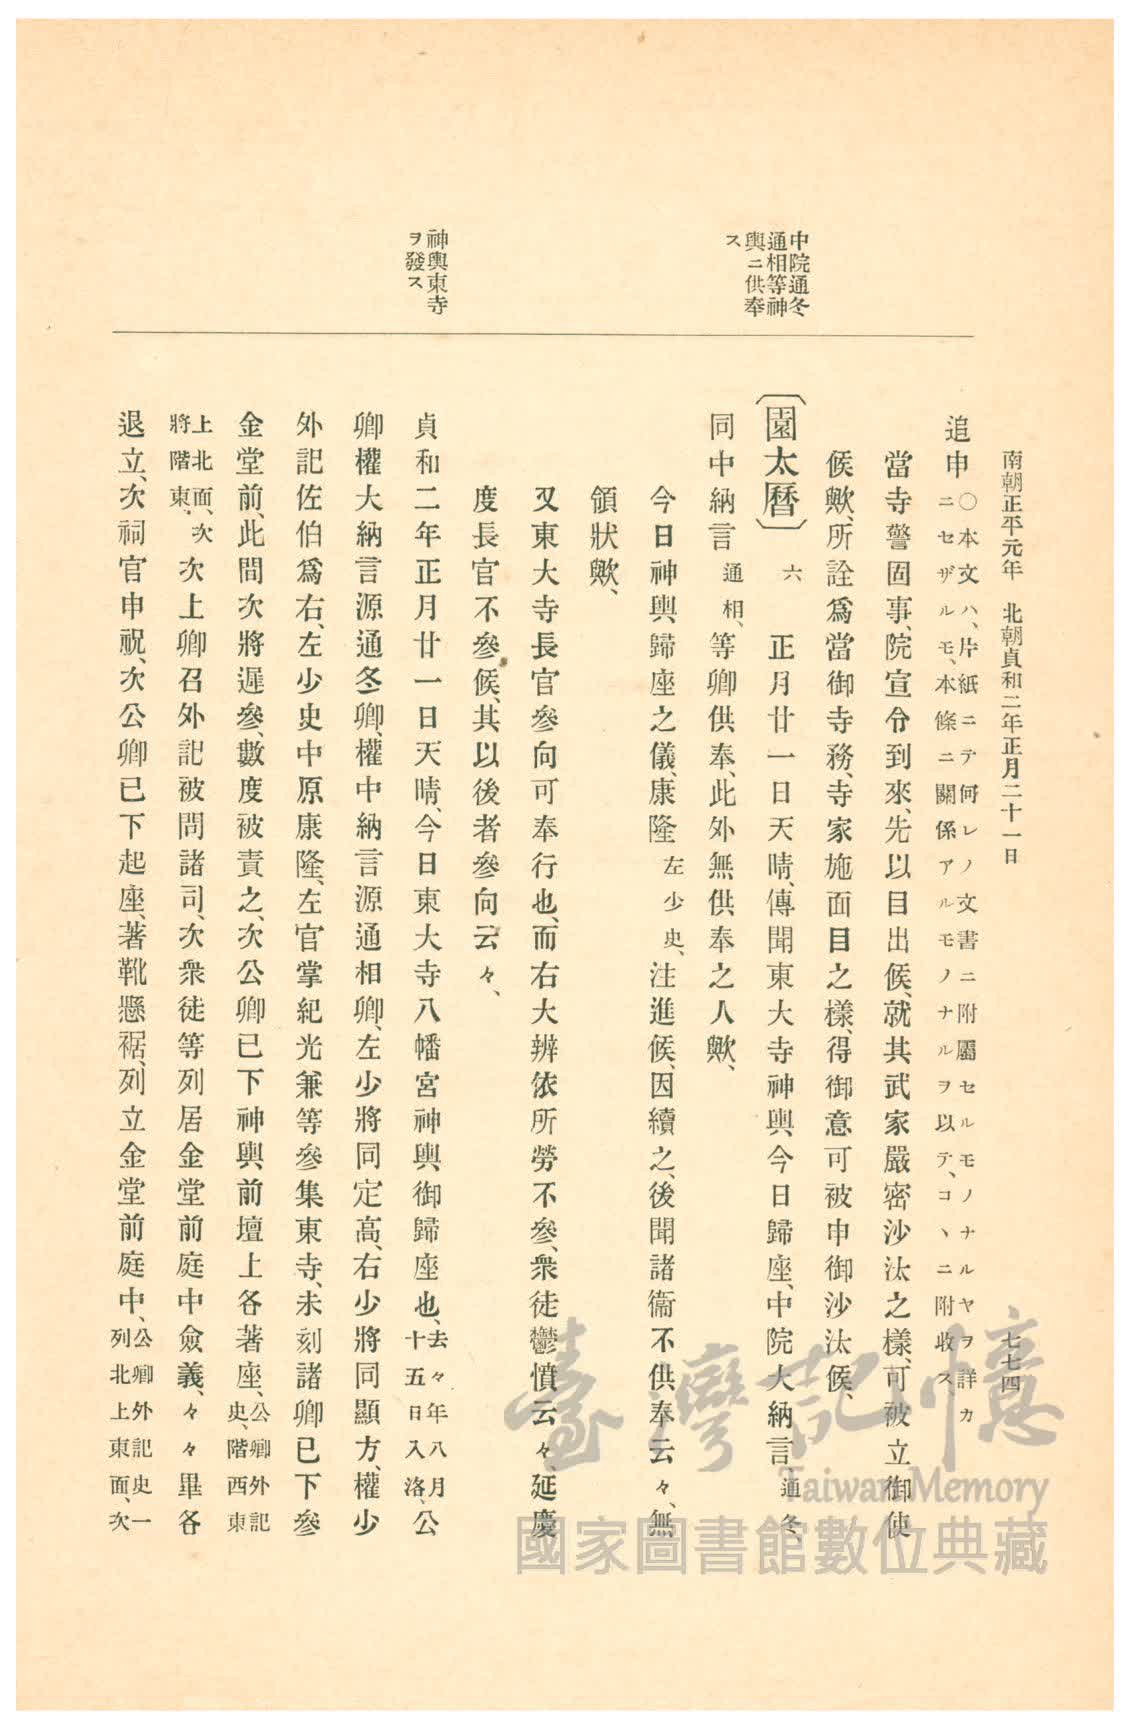 南朝正平元年 北朝貞和二年正月二十一日 七七四
追申〇本文ハ、片紙ニテ何レノ文書ニ附屬セルモノナルヤヲ詳カ
ニセザルモ、本條ニ關係アルモノナルヲ以テ、コヽニ附收ス
當寺警固事、院宣令到來、先以目出候、就其武家嚴密沙汰之樣、可被立御使
候歟、所詮爲當御寺務、寺家施面目之樣、得御意可被申御沙汰候、
〔園太曆〕六 正月廿一日天晴、傳聞東大寺神輿、今日歸座、中院大納言通冬、
同中納言通相、等卿供奉、此外無供奉之人歟、
今日神輿、歸座之儀、康隆左少史、注進候、因續之、後聞諸衞不供奉云々、無
領狀歟、
又東大寺長官參向可奉行也、而右大辨依所勞不參、衆徒鬱憤云々、延慶
度長官不參候、其以後者參向云々、
貞和二年正月廿一日天晴、今日東大寺八幡宮神輿、御歸座也、去々年八月十五日入洛、公
卿權大納言源通冬卿、權中納言源通相卿、左少將同定高、右少將同顯方、權少
外記佐伯爲右、左少史中原康隆、左官掌紀光兼等參集東寺、未刻諸卿已下參
金堂前、此間次將遲參、數度被責之、次公卿已下神輿、前壇上各著座、公卿外記史、階西東
上北面、次將階東、次上卿召外記被問諸司、次衆徒等列居金堂前庭中僉義、々々畢各
退立、次祠官申祝、次公卿已下起座、著靴懸裾、列立金堂前庭中、公卿外記史一列北上東面、次
中院通冬
通相等神
輿ニ供奉
ス
神輿東寺
ヲ發ス
臺灣記憶
Taiwan Memory
國家圖書館數位典藏